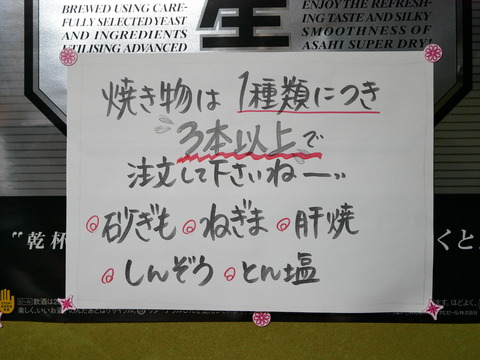 BREWED USING CARE-
FULLY SELECTED YEAST
AND INGREDIENTS
UTILISING ADVANCED
ENJOY THE REFRESH-
ING TASTE AND SILKY
SMOOTHNESS OF
ASAHI SUPER DRY!
生
焼き物は1種類につき
3本以上で
注文して下さいねーッ
砂ぎも ねぎま 肝焼
しんぞう とん塩
“乾杯
くと